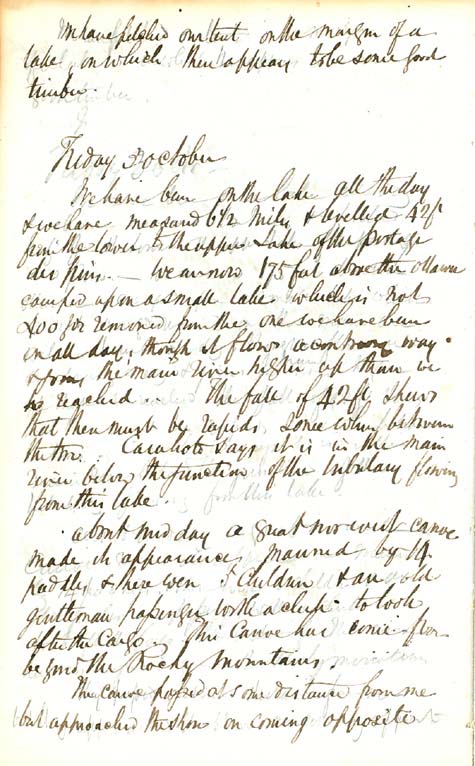 We have pitched our tent on the margin of a
lake on which there appears to be some good
timber.
Friday 3 October
We have been on the lake all the day
& we have measured 6 1/2 miles & levelled 42 ft
from the lower to the upper Lake of the Portage
des Pins. — We are now 175 feet above the Ottawa
camped upon a small lake which is not
400 removed from the one we have been
in all day, though it flows a contrary way
& joins the main river higher up than we
reached. The fall of 42 ft shews
that there must be rapids some where between
the two. says it is in the main
river below the junction of the tributary flowing
from this lake.
About mid day a great nor west canoe
made its appearance, manned by 14
paddles & there were 5 children & an old
gentleman passenger with a clerk to look
after the cargo. This Canoe has come from
beyond the Rocky Mountains
The canoe passed at some distance from me
but approached the shore on coming opposite